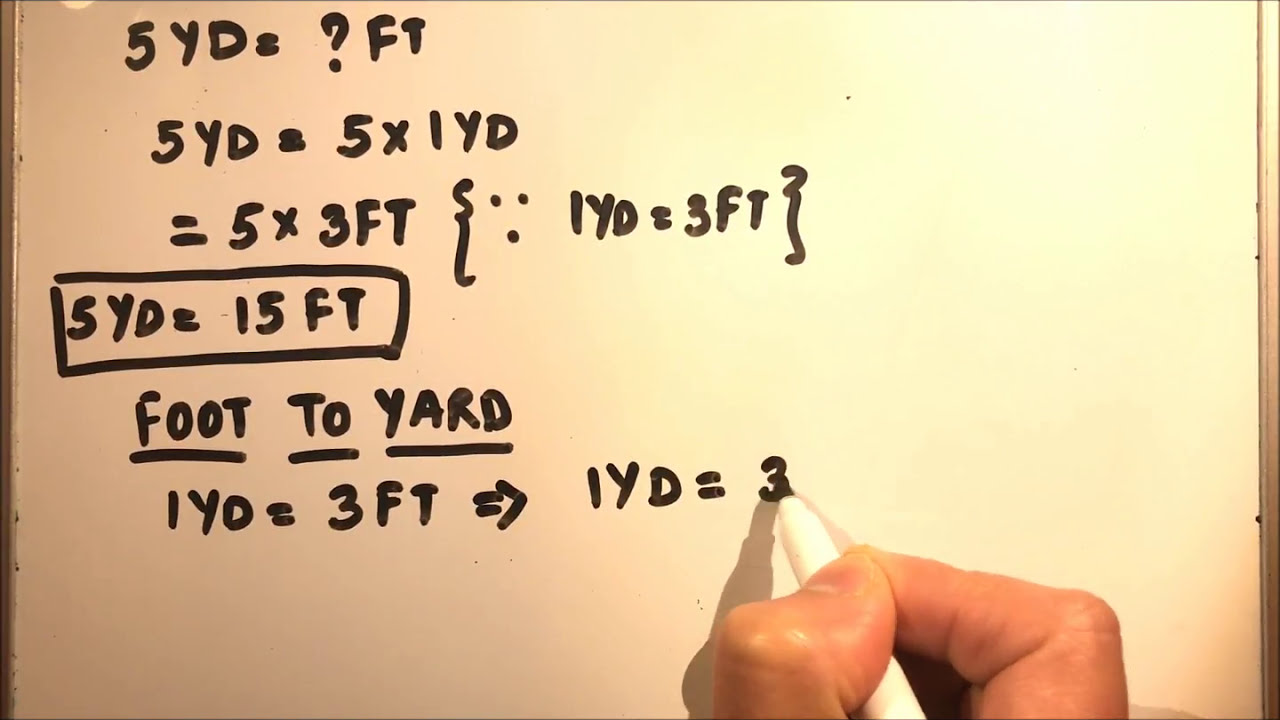 5YD= ? FT
5YD = 5×1YD
= 5× 3FT { ∵ 1YD=3FT}
5YD= 15 FT
FOOT TO YARD
1YD= 3FT ⇒ 1YD= 3